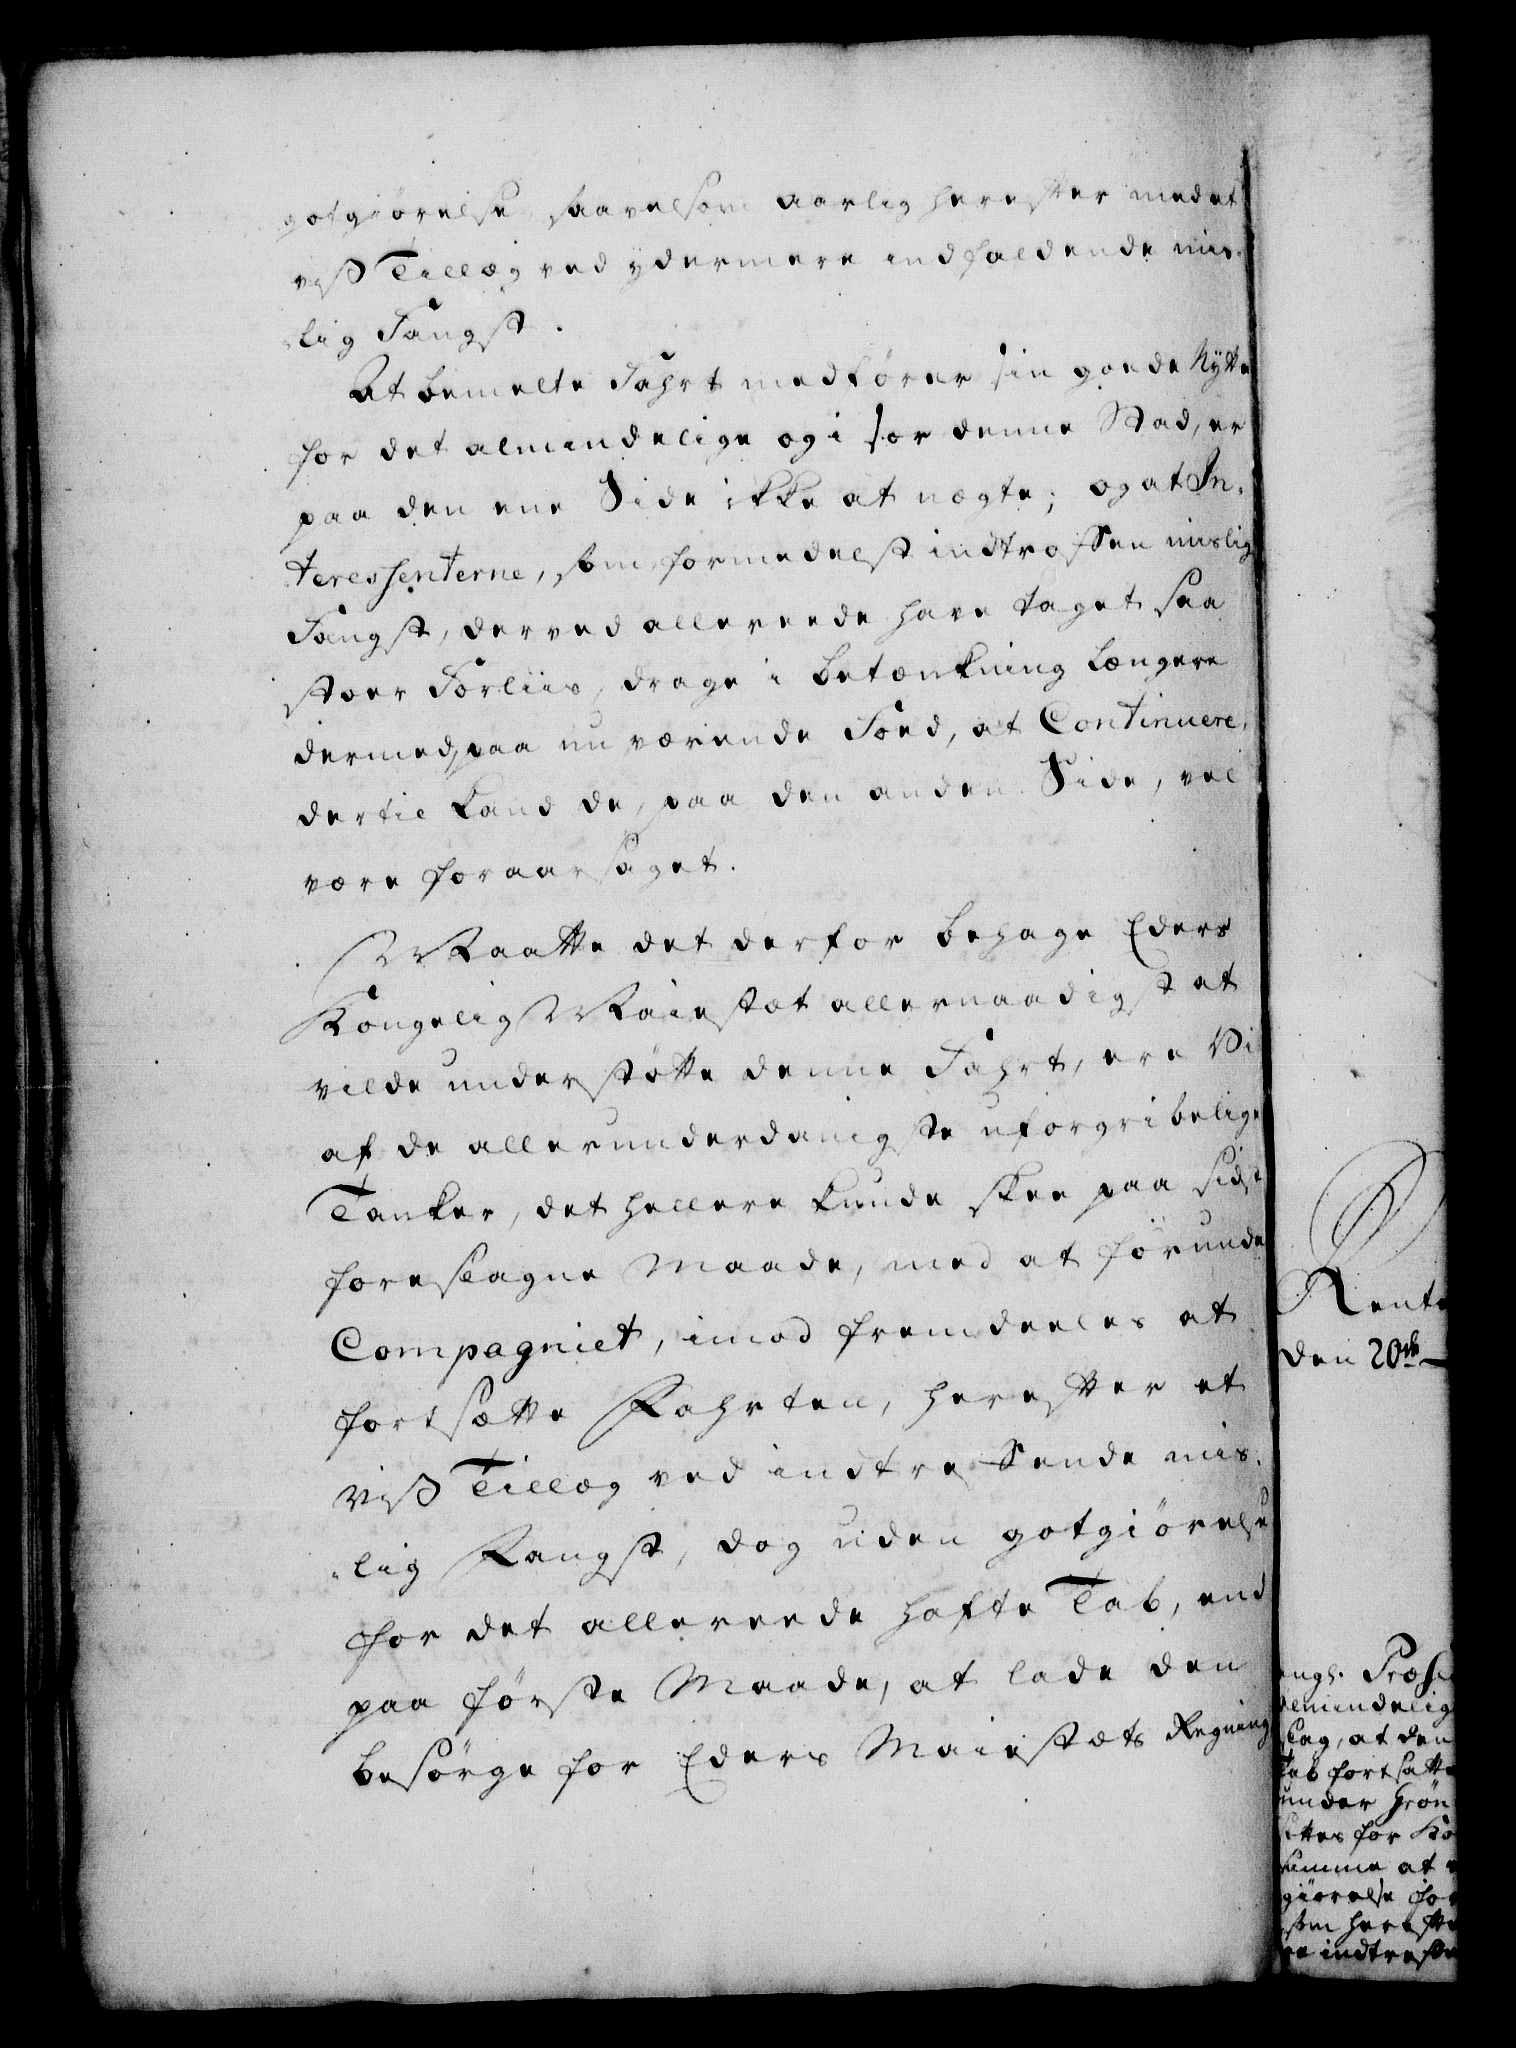 gotgiørelse, saavelsom aarlig herefter med et
vist Tillæg ved ydermere indfaldende mis-
lig Fangst.
At bemelte Fahrt medfører sin goede Nytte
for det almindelige og i sær denne Stad, er
paa den ene Side ikke at nægte; og at In-
teressenterne, som formedelst indtroffen mislig
Fangst, derved allereede have taget saa
stoer Forliis, drage i betænkning længere
dermed, paa nu værende Foed, at Continuere,
dertil kand de, paa den anden Side, vel
være foraarsaget.
Maatte det derfor behage Eders
Kongelig Maiestæt allernaadigst at
vilde understøtte denne Fahrt, ere Vi
af de allerunderdanigste uforgribelige
Tanker, det hellere kunde skee paa sidst
foreslagne Maade, med at forunde
Compagniet, imod fremdeeles at
fortsætte Fahrten, herefter et
vist Tillæg ved indtreffende mis-
lig Fangst, dog uden gotgiørelse
for det allereede hafte Tab, end
paa første Maade, at lade den
besørge for Eders Maiestæts Regning
Rente
den 20de
Præsi
almindelig
slag, at den
Tab fortsatte
under Grøn
for Ko
summe at
giørelse for
som herefte
indtreffe